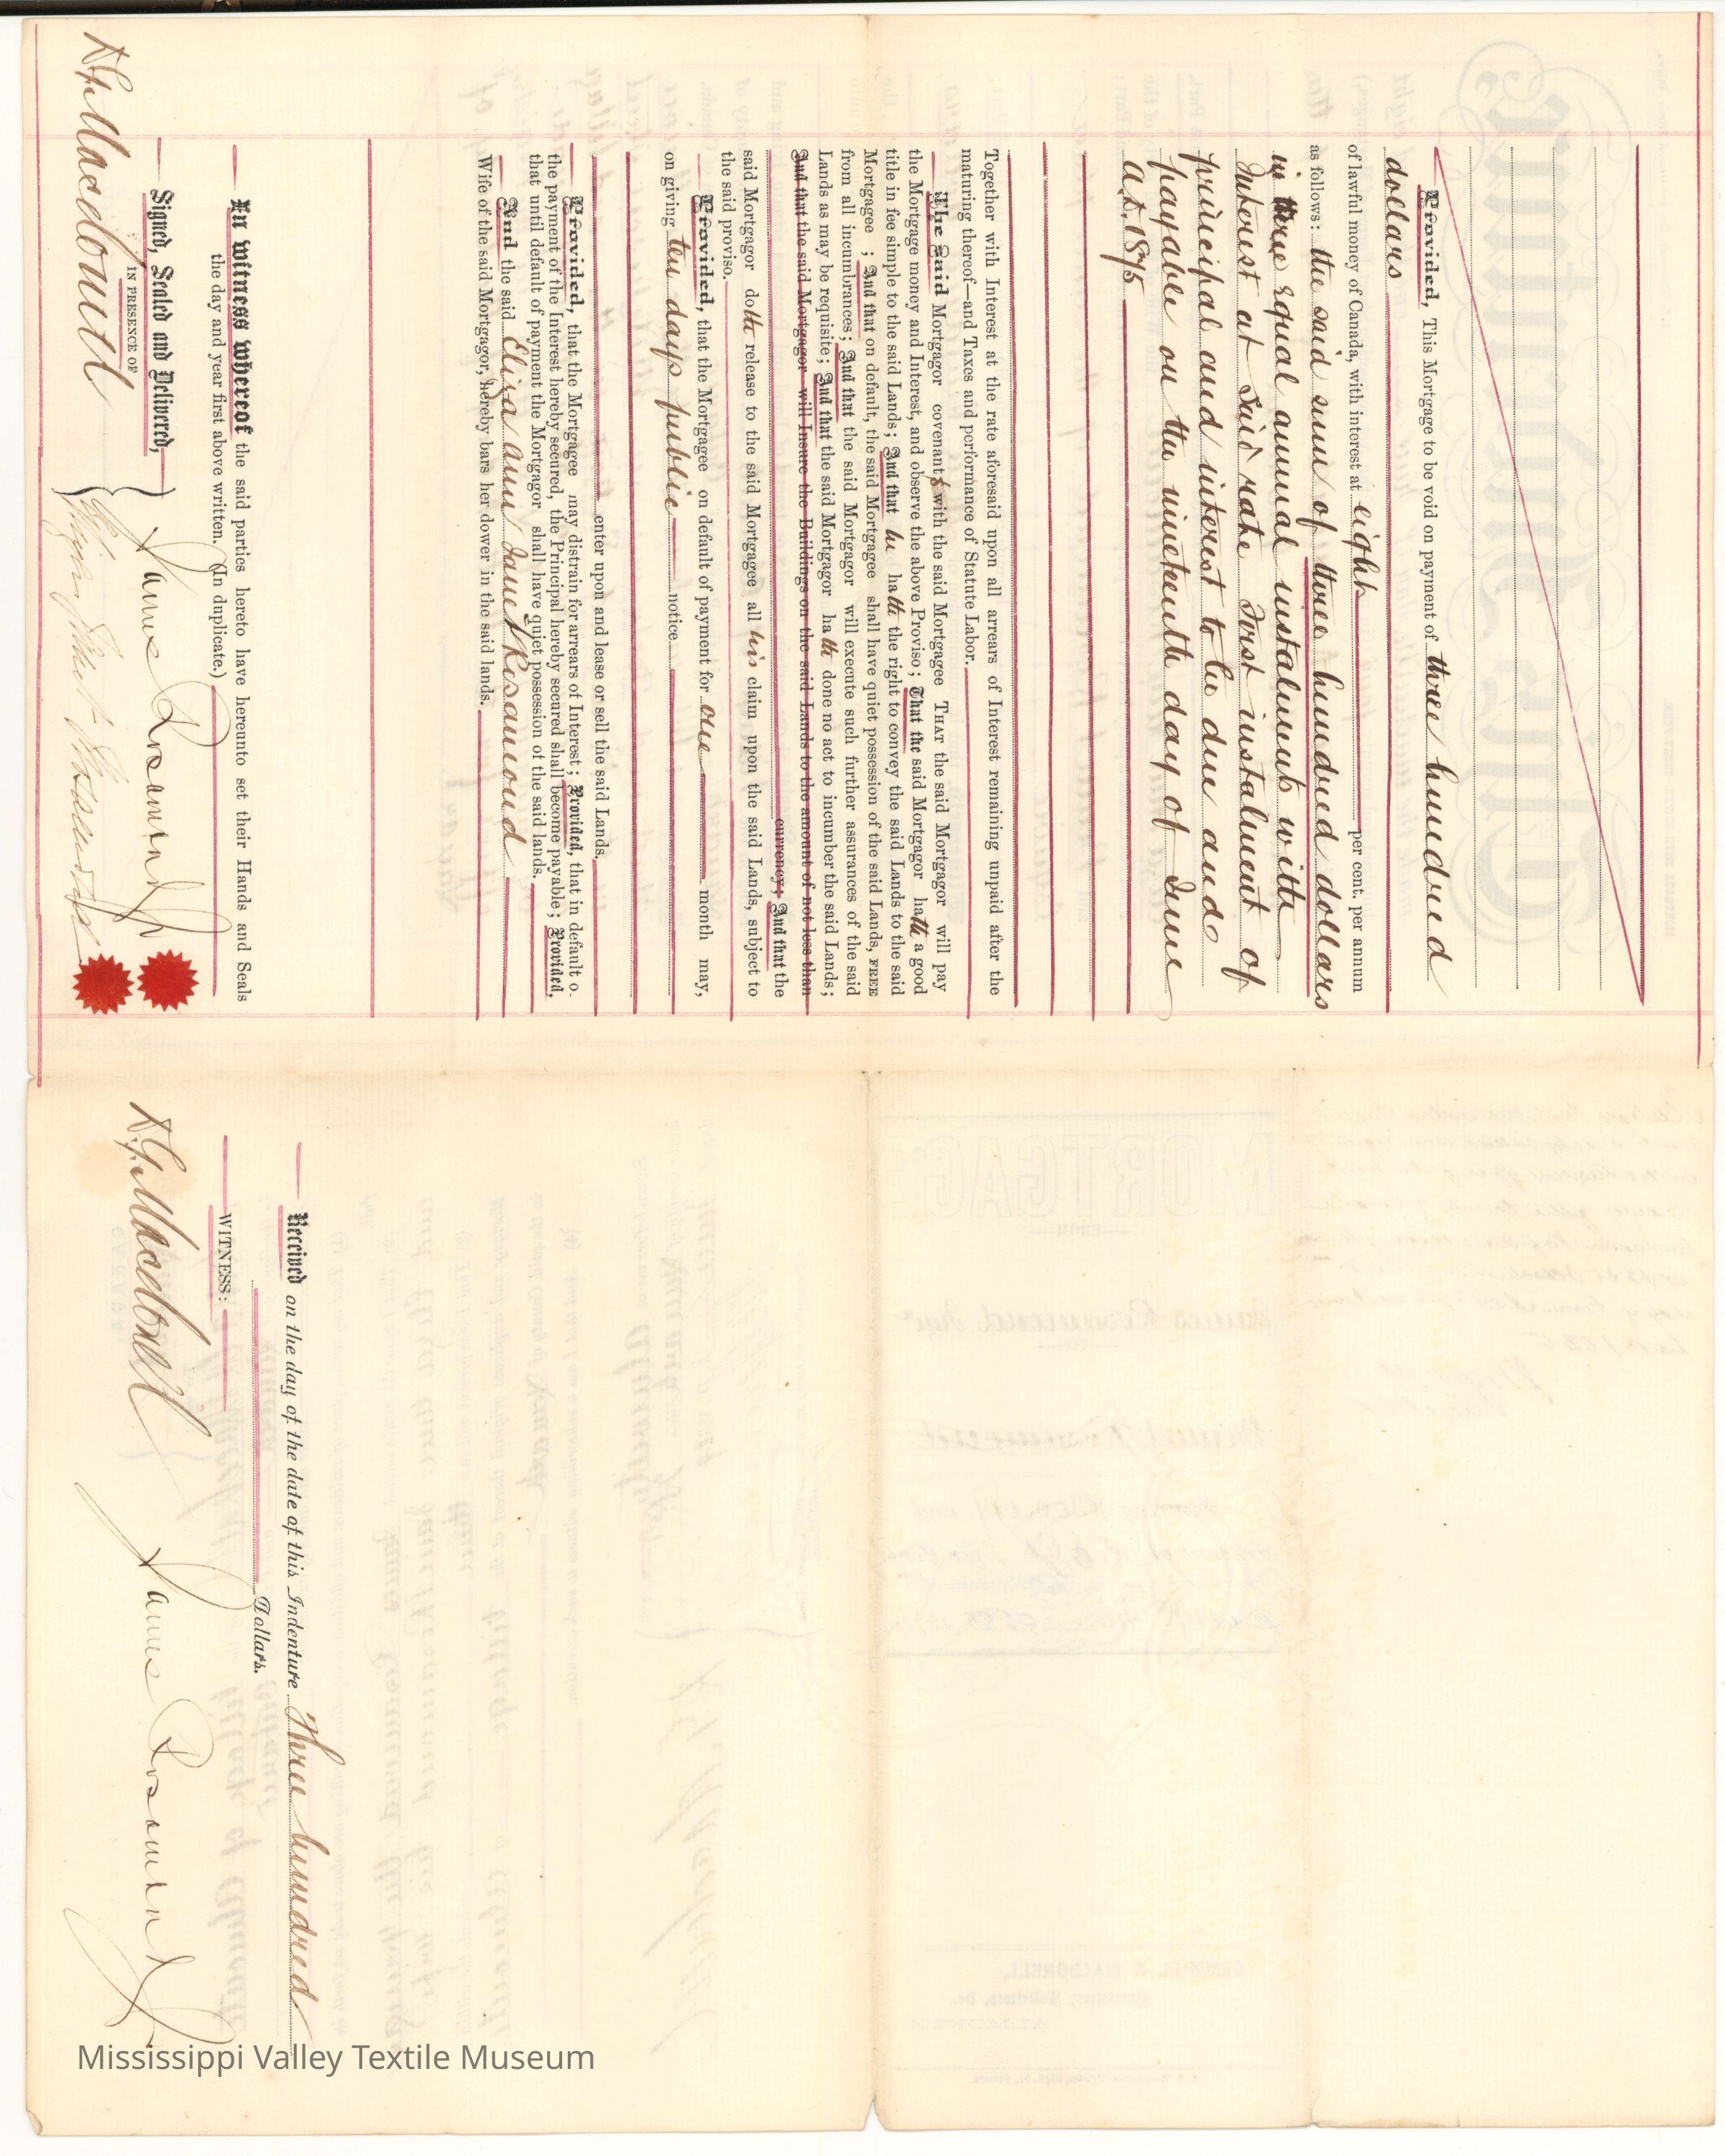 Provided, This Mortgage to be void on payment of three hundred
dollars
of lawful money of Canada, with interest at eight per cent. per annum
as follows: the said sum of three hundred dollars
in three equal annual instalments with
interest at said rate First instalment of
principal and interest to be due and
payable on the nineteenth day of June
A.D. 1875
Together with Interest at the rate aforesaid upon all arrears of Interest remaining unpaid after the
maturing thereof—and Taxes and performance of Statute Labor.
The Said Mortgagor covenants with the said Mortgagee THAT the said Mortgagor will pay
the Mortgage money and Interest, and observe the above Proviso; That the said Mortgagor hath a good
title in fee simple to the said Lands; And that he hath the right to convey the said Lands to the said
Mortgagee; And that on default, the said Mortgagee shall have quiet possession of the said Lands, FREE
from all incumbrances; And that the said Mortgagor will execute such further assurances of the said
Lands as may be requisite; And that the said Mortgagor hath done no act to incumber the said Lands;
And that the said Mortgagor will Insure the Buildings on the said Lands to the amount of not less than
currency; And that the
said Mortgagor doth release to the said Mortgagee all his claim upon the said Lands, subject to
the said proviso.
Provided, that the Mortgagee on default of payment for one month may,
on giving ten days public notice
enter upon and lease or sell the said Lands.
Provided, that the Mortgagee may distrain for arrears of Interest; Provided, that in default o.
the payment of the Interest hereby secured, the Principal hereby secured shall become payable; Provided,
that until default of payment the Mortgagor shall have quiet possession of the said lands.
And the said Eliza Ann Jane Rosamond
Wife of the said Mortgagor, hereby bars her dower in the said lands.
In witness whereof the said parties hereto have hereunto set their Hands and Seals
the day and year first above written. (In duplicate.)
Signed, Sealed and Delivered,
IN PRESENCE OF
James Rosamond Jr
Macdonell
Received on the day of the date of this Indenture Three hundred
Dollars.
WITNESS:
Macdonell
James Rosamond Jr
MORTGAGE
FROM
James Rosamond Junr
TO
Rosamond
Mississippi Valley Textile Museum